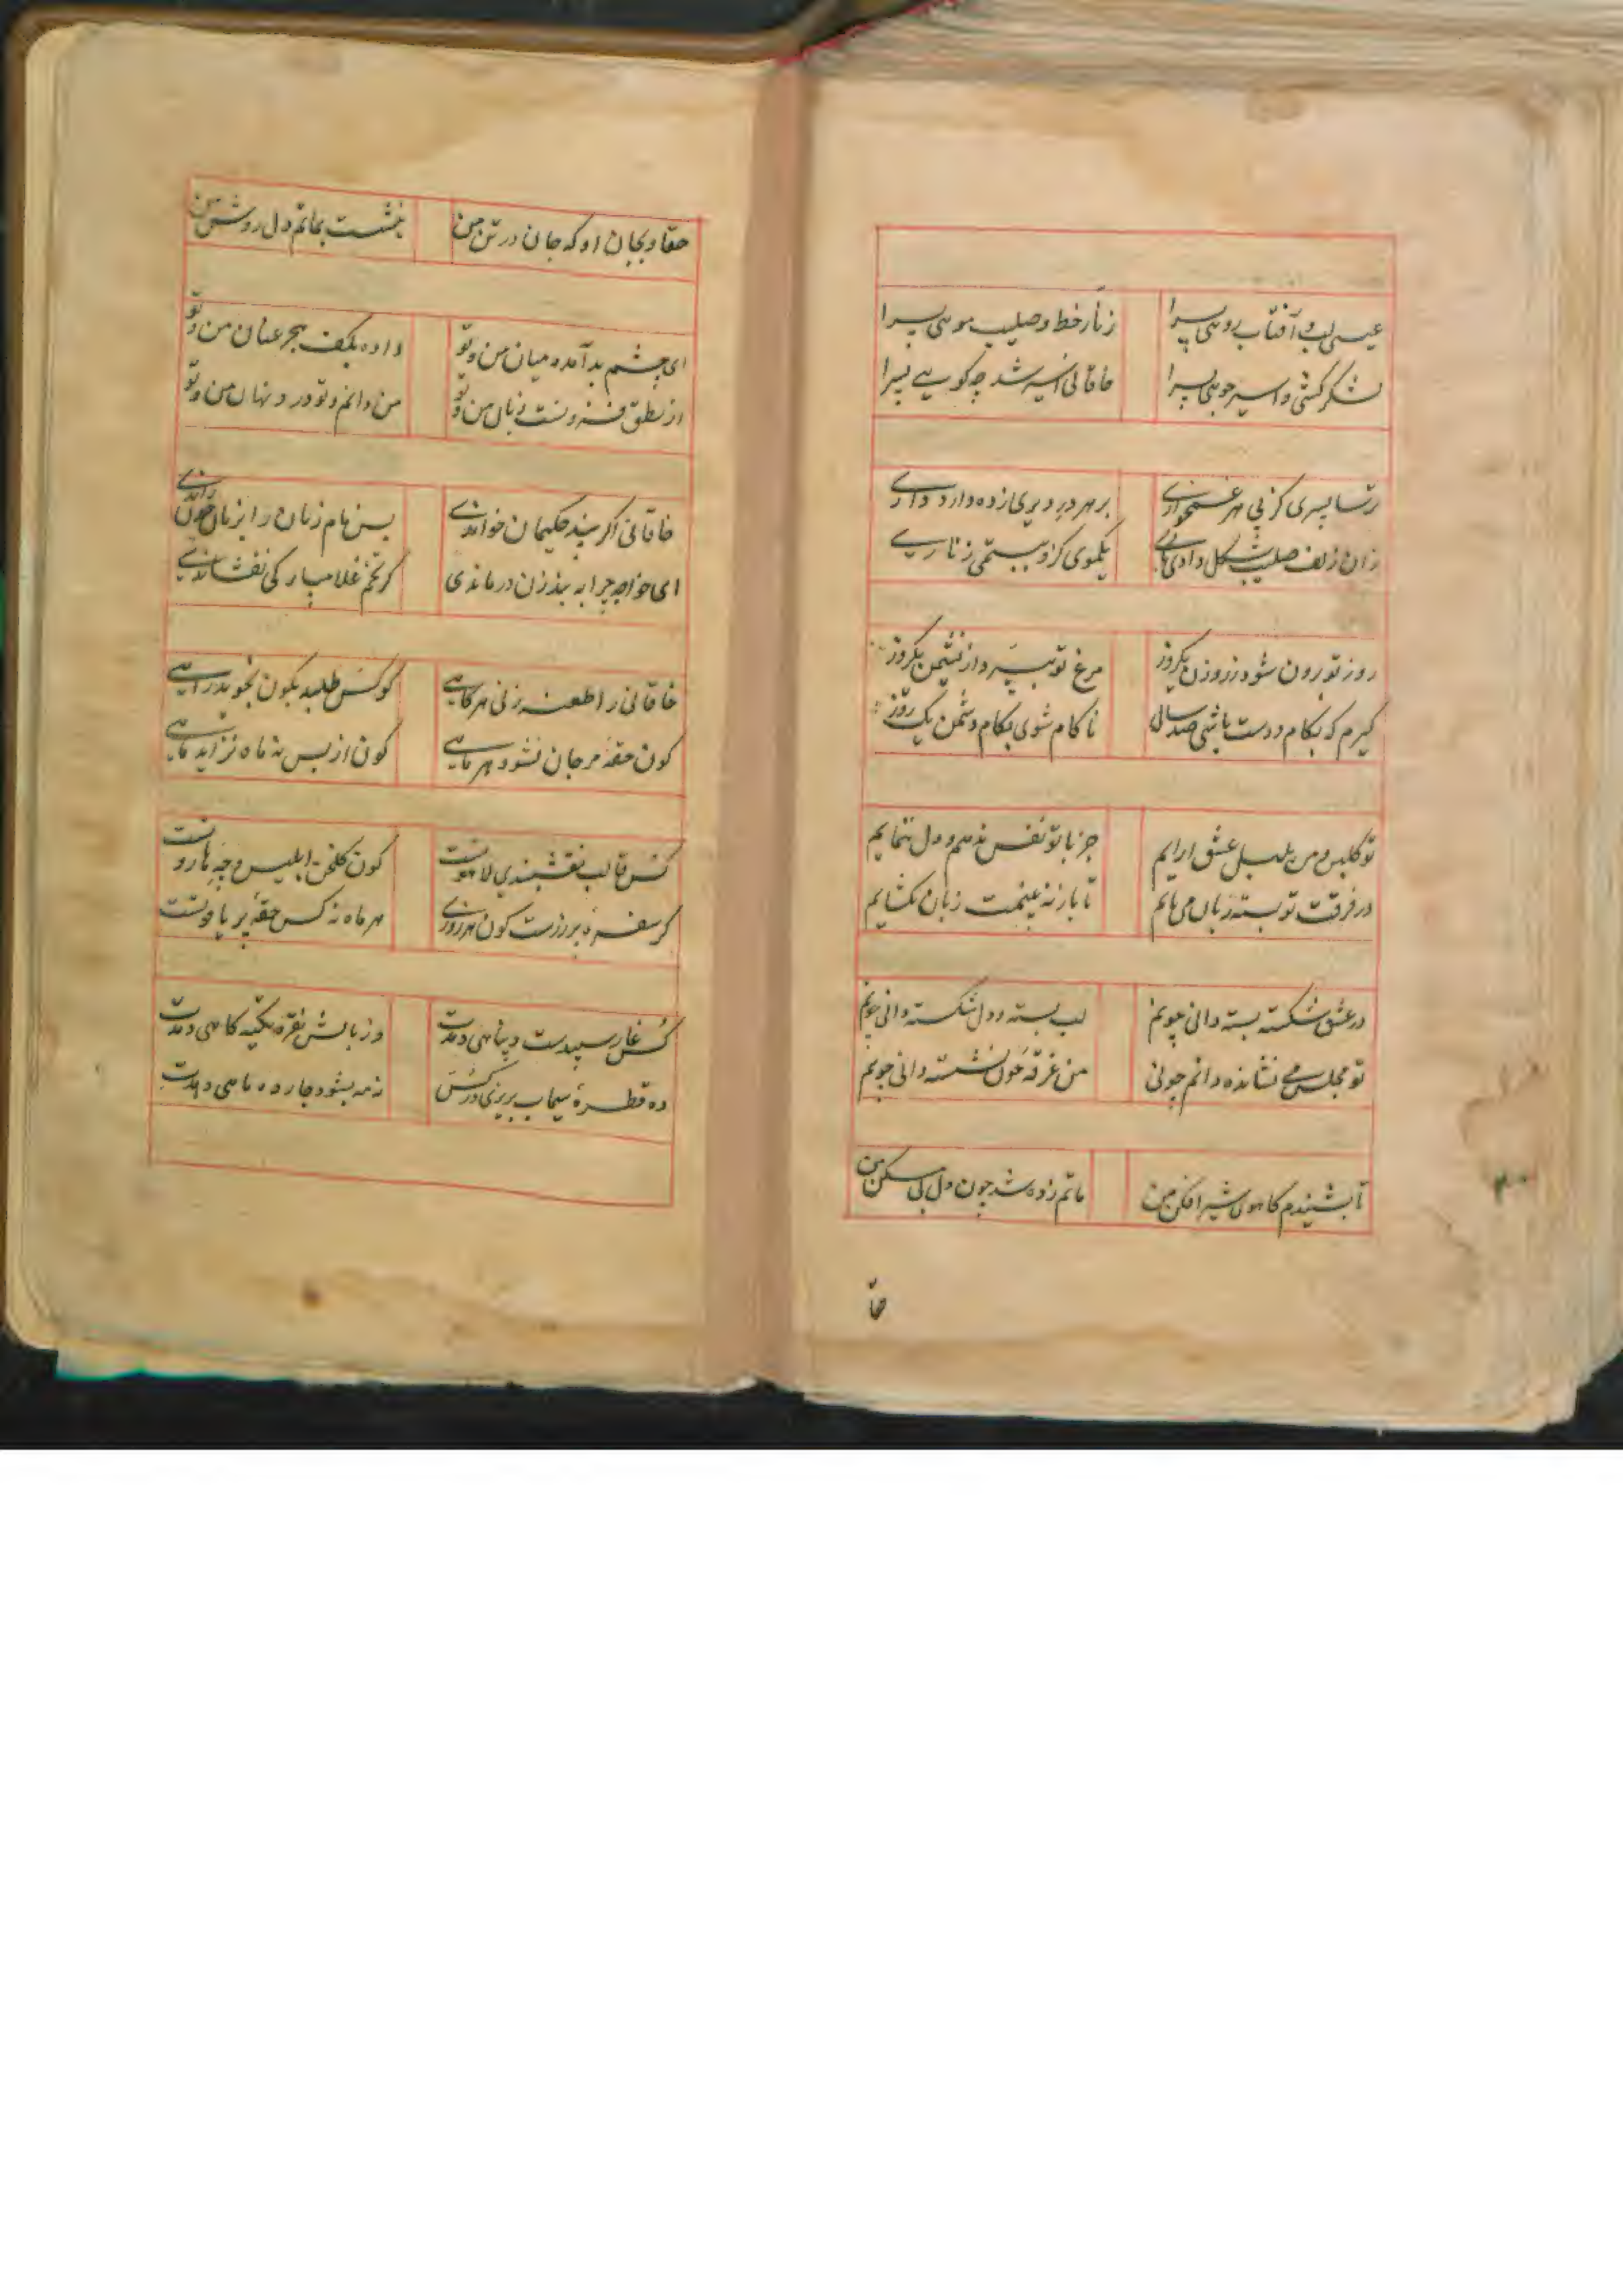 عیسی لب و آفتاب رویی پسرا زنار خط و صلیب مویی پسرا
لشکرکشی و اسیر جویی پسرا خاقانی اسیر شد چه گویی پسرا
ترسا پسری کز پی هر غمخواری بر هر در دیری زده دارد داری
زان زلف صلیب شکل دادی باری یکموی کزو ببستمی زناری
روز تو برون شود ز روزن یکروز مرغ تو بپرد از نشیمن یکروز
گیرم که بکام دوست باشی صد سال ناکام شوی بکام دشمن یک روز
تو گلبن و من بلبل عشق ارایم جز با تو نفس ندهم و دل ننمایم
در فرقت تو بسته زبان می‌مانم تا باز نه بینمت زبان نگشایم
در عشق شکسته بسته دانی چونم لب بسته و دل شکسته دانی چونم
تو مجلس می نشانده دانم چونی من غرقه خون نشسته دانی چونم
تا بشنیدم کاهوی شیر افکن من ماتم زده شد چون دل بی مسکن من
حقا
حقا و بجان او که جان در تن من بنشست بماتم دل روشن من
ای چشم بد آمده میان من و تو داده بکف هجر عنان من و تو
از نطق فرو بست زبان من و تو من دانم و تو درد نهان من و تو
خاقانی اگر پند حکیمان خواندی پس نام زنان را بزبان چون راندی
ای خواجه چرا به بند زن درماندی گر تخم غلامبارکی نفشاندی
خاقانی را طعنه زنی هر گاهی کو کس طلبد بکون نجوید راهی
کون حقه مرجان نشود هر ماهی کون از پس نه ماه نزاید ماهی
کس قالب نقشبندی لاهوتست کون گلخن ابلیس و چه هاروتست
گر سفره پر زرست کون هر روزی هر ماه نه کس حقه پر یاقوتست
کس غار سپیدست و پناهی دهدت وز بالش نقره تکیه گاهی دهدت
ده قطره سیماب بریزی در کس نه مه بشود چارده ماهی دهدت